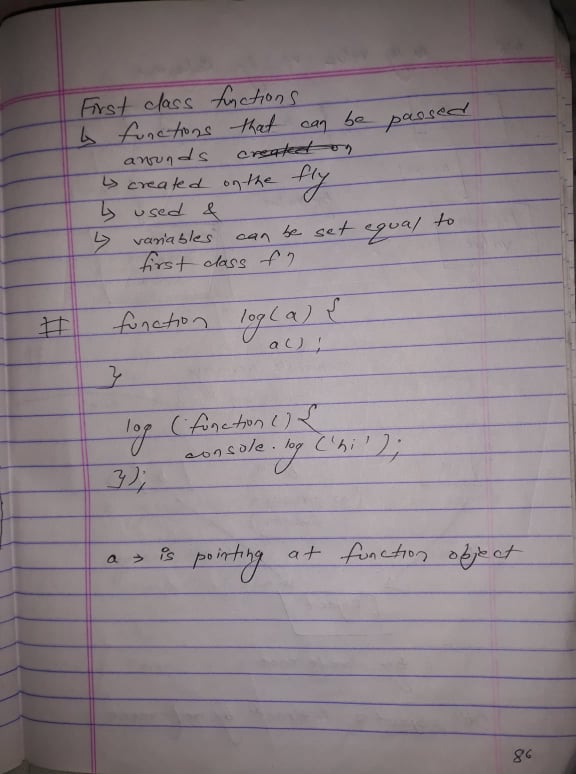 First class functions
↳ functions that can be passed
arounds created on
↳ created on the fly
↳ used &
↳ variables can be set equal to
first class fn
# function log(a) {
a();
}
log (function() {
console.log ('hi');
});
a → is pointing at function object
86